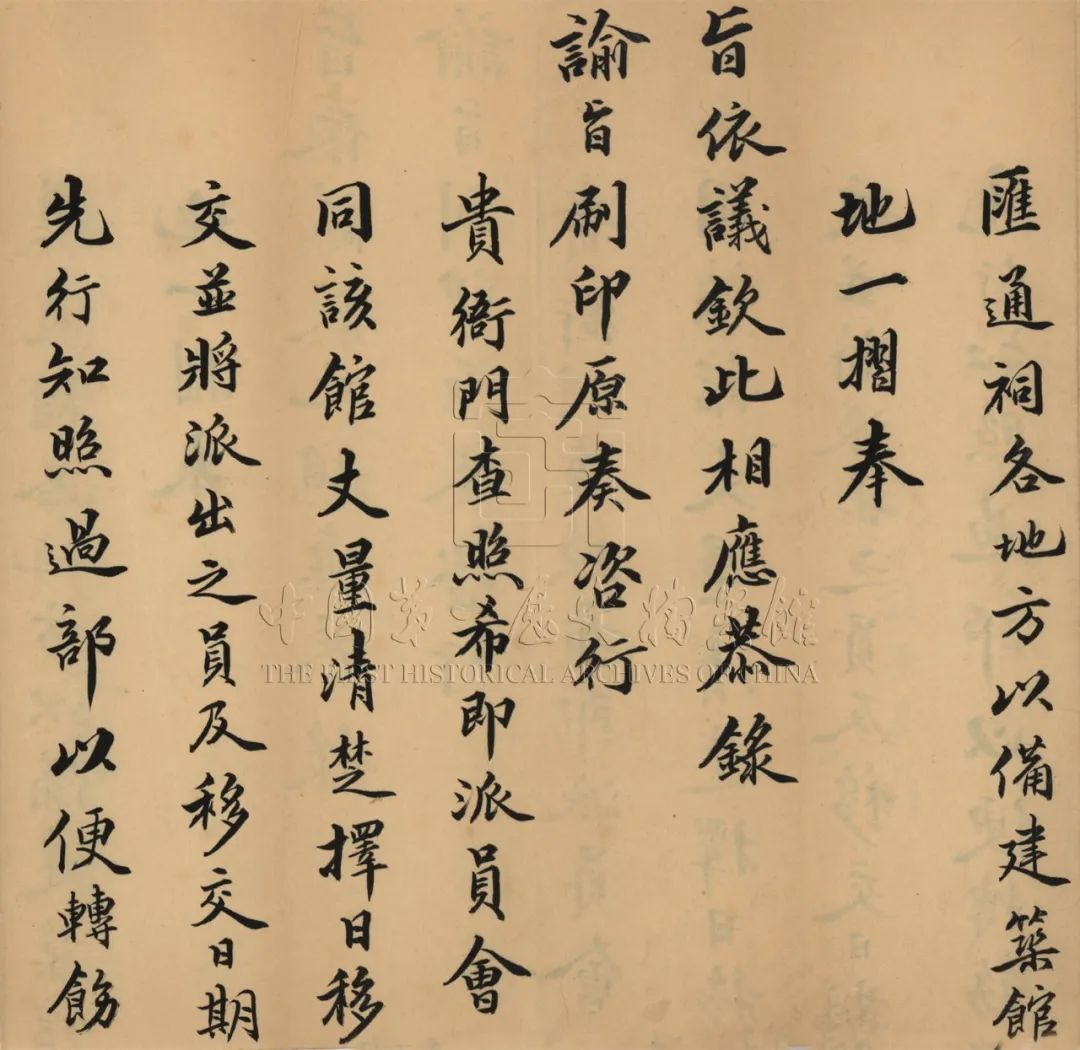 匯通祠各地方以備建築館
地一摺奉
旨依議欽此相應恭錄
諭旨刷印原奏咨行
貴衙門查照希即派員會
同該館丈量清楚擇日移
交並將派出之員及移交日期
先行知照過部以便轉飭
中國第一歷史檔案館
THE FIRST HISTORICAL ARCHIVES OF CHINA